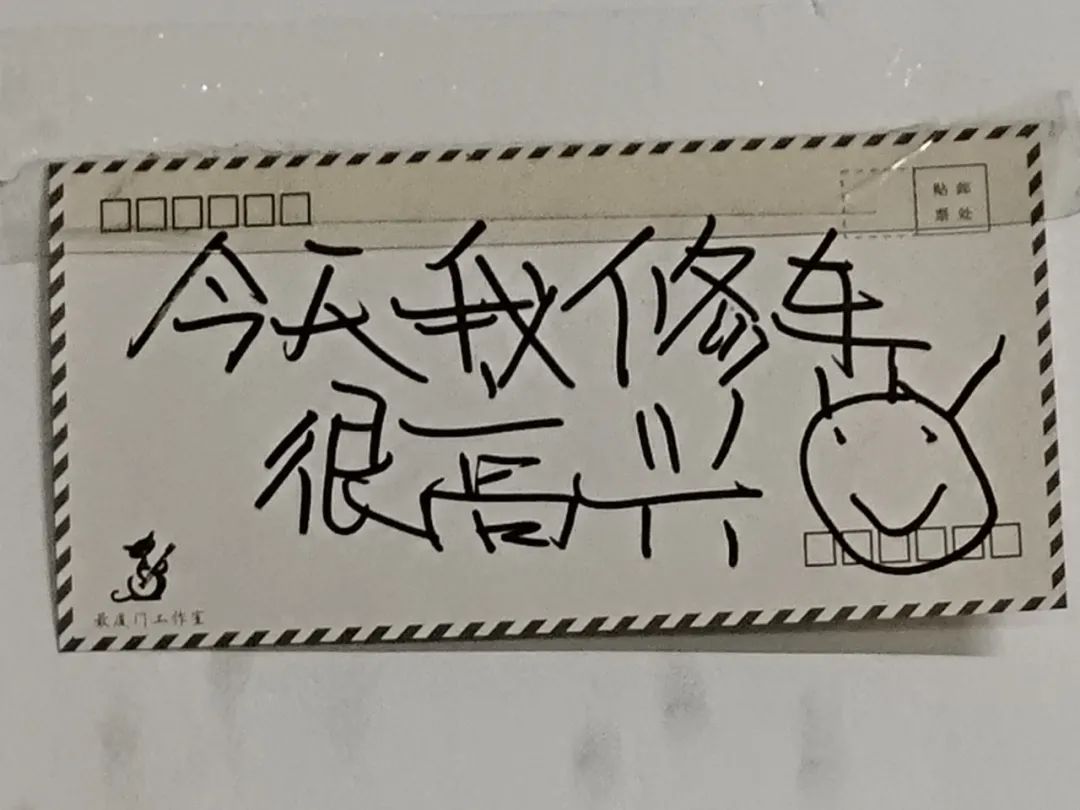 貼 邮
票 处
今天我修车
很高兴
最厦门工作室